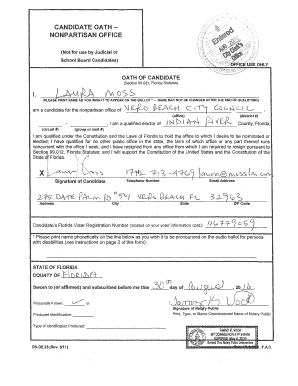 CANDIDATE OATH –
NONPARTISAN OFFICE
(Not for use by Judicial or
School Board Candidates)
OFFICE USE ONLY
OATH OF CANDIDATE
(Section 99.021, Florida Statutes)
I, LAURA MOSS
(PLEASE PRINT NAME AS YOU WISH IT TO APPEAR ON THE BALLOT – NAME MAY NOT BE CHANGED AFTER THE END OF QUALIFYING)
am a candidate for the nonpartisan office of VERO BEACH CITY COUNCIL,
(office) (district #)
I am a qualified elector of INDIAN RIVER County, Florida;
(circuit #) (group or seat #)
I am qualified under the Constitution and the Laws of Florida to hold the office to which I desire to be nominated or
elected; I have qualified for no other public office in the state, the term of which office or any part thereof runs
concurrent with the office I seek; and I have resigned from any office from which I am required to resign pursuant to
Section 99.012, Florida Statutes; and I will support the Constitution of the United States and the Constitution of the
State of Florida.
X
Signature of Candidate Telephone Number Email Address
275 DATE PALM RD VERO BEACH FL 32963
Address City State ZIP Code
Candidate's Florida Voter Registration Number (located on your voter information card): 116779059
Please print name phonetically on the line below as you wish it to be pronounced on the audio ballot for persons
with disabilities (see instructions on page 2 of this form):
STATE OF FLORIDA
COUNTY OF FLORIDA
Sworn to (or affirmed) and subscribed before me this 30 day of August, 20
Personally Known: or
Signature of Notary Public
Produced Identification: Print, Type, or Stamp Commissioned Name of Notary Public
Type of Identification Produced:
DS-DE 25 (Rev. 5/11) F.A.C.